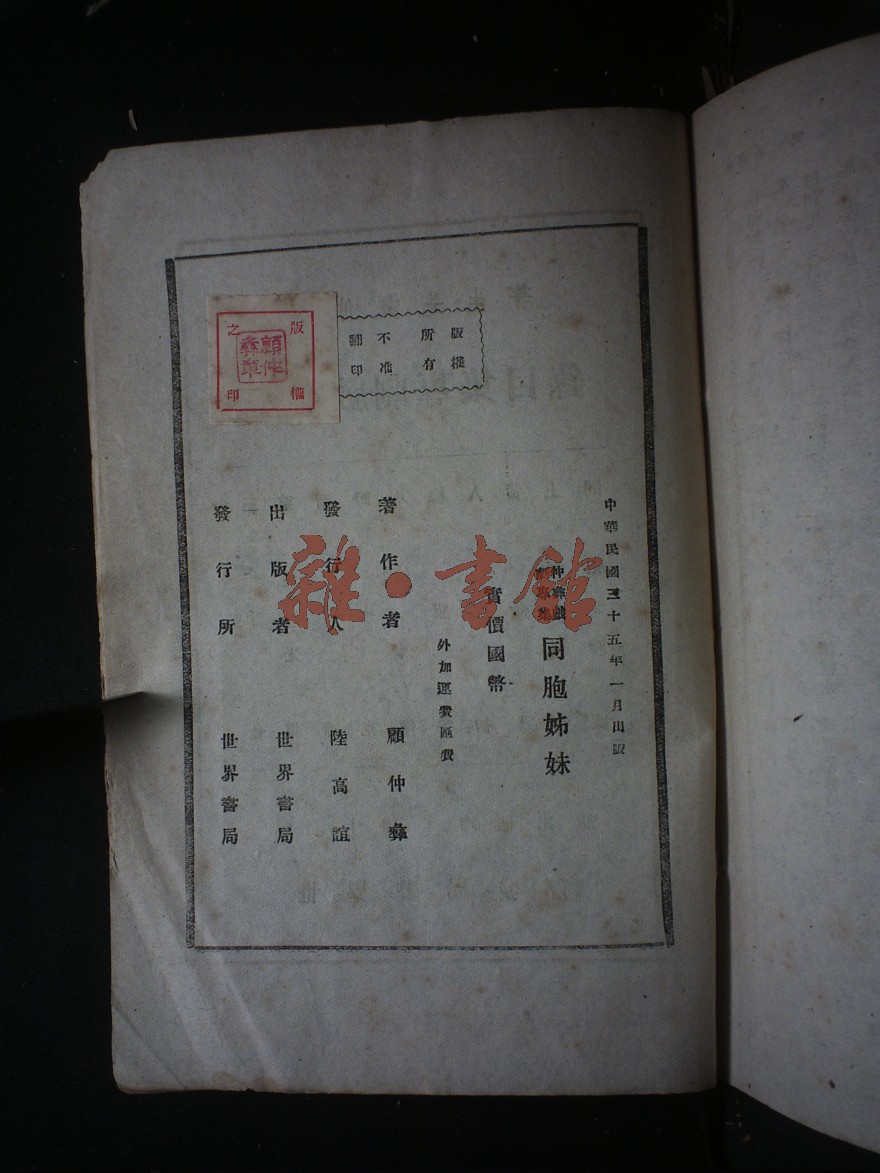 版權所有
不准翻印
版權之印
顧仲彝章
中華民國三十五年一月出版
同胞姊妹
實價國幣
外加運費匯費
著作者 顧仲彝
發行人 陸高誼
出版者 世界書局
發行所 世界書局
雜·書館